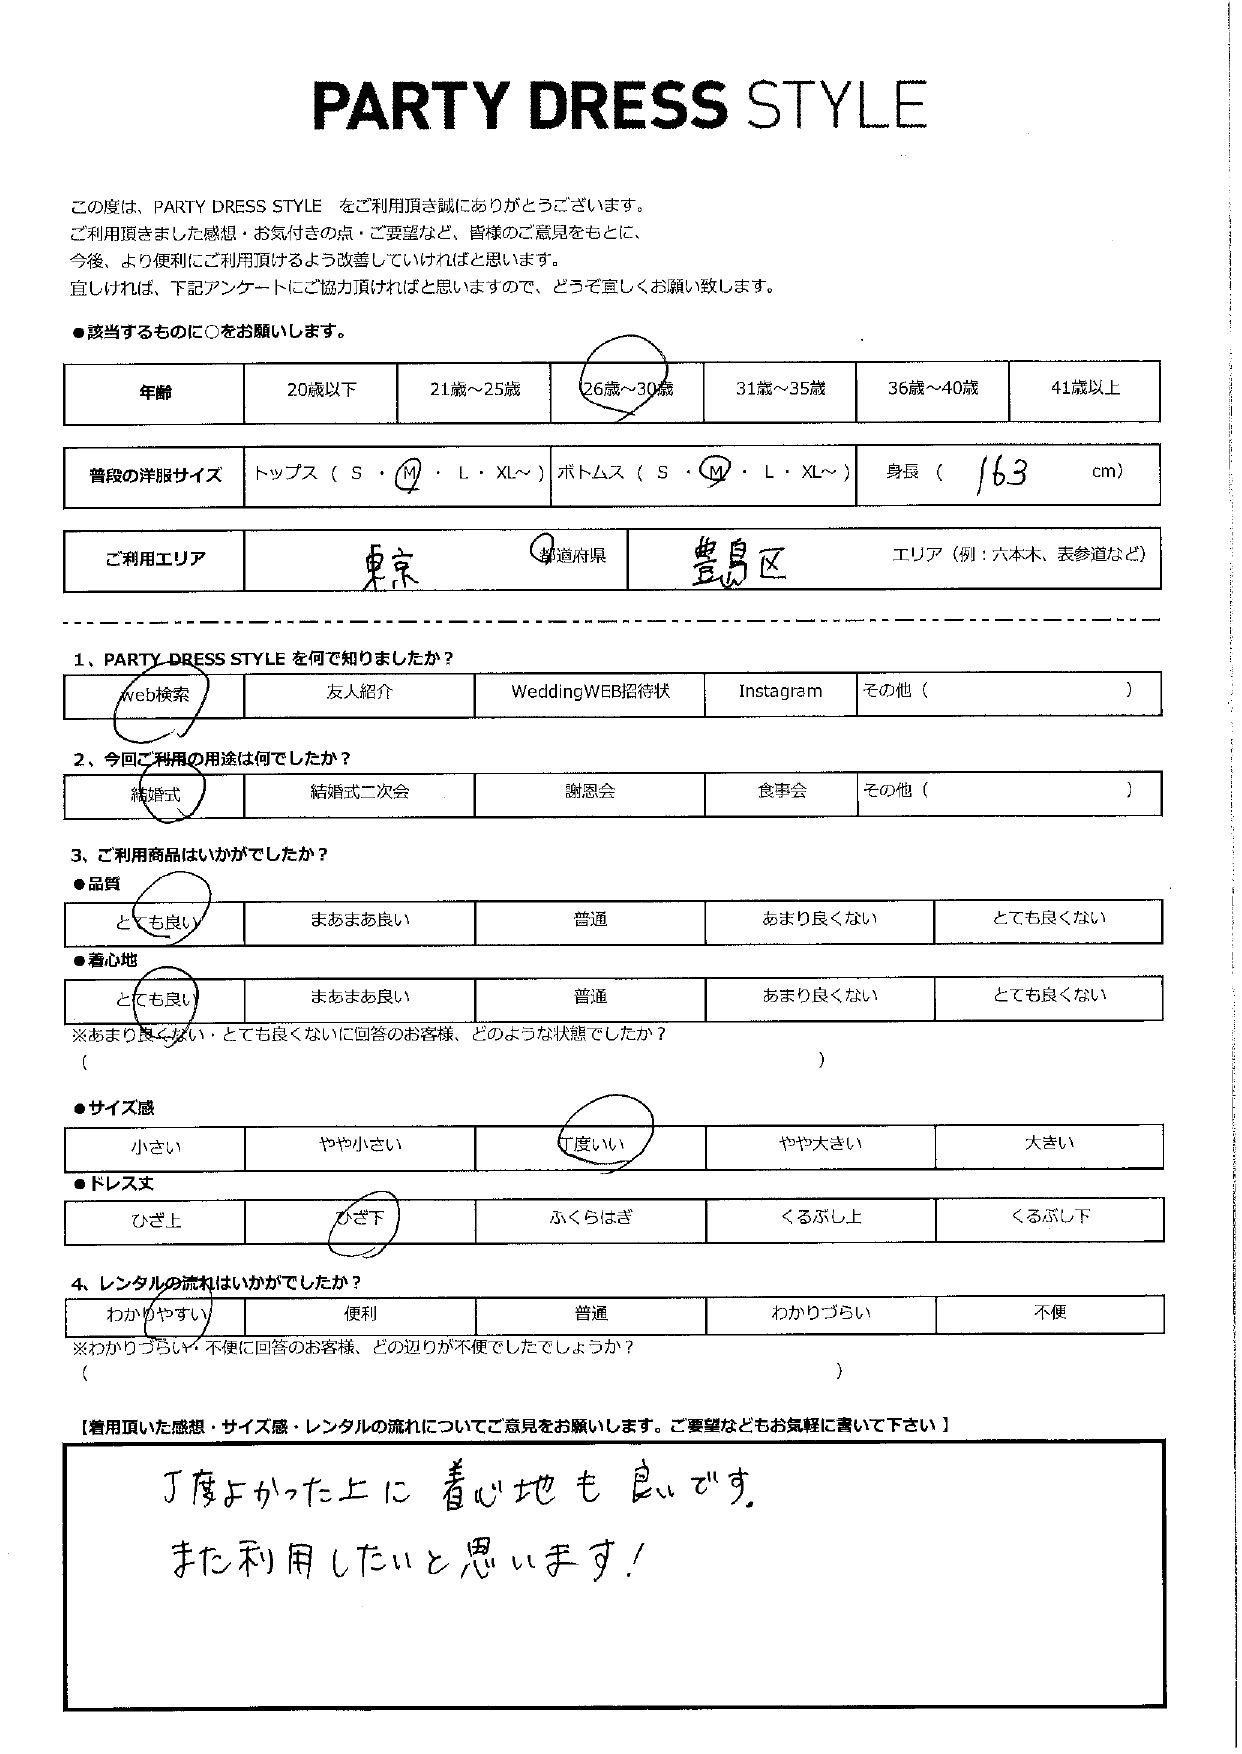 PARTY DRESS STYLE
この度は、PARTY DRESS STYLE をご利用頂き誠にありがとうございます。
ご利用頂きました感想・お気付きの点・ご要望など、皆様のご意見をもとに、
今後、より便利にご利用頂けるよう改善していければと思います。
宜しければ、下記アンケートにご協力頂ければと思いますので、どうぞ宜しくお願い致します。
●該当するものに○をお願いします。
年齢 20歳以下 21歳～25歳 26歳～30歳 31歳～35歳 36歳～40歳 41歳以上
普段の洋服サイズ トップス（ S ・ M ・ L ・ XL～ ） ボトムス（ S ・ M ・ L ・ XL～ ） 身長 （ 163 cm）
ご利用エリア 東京 都道府県 豊島区 エリア（例：六本木、表参道など）
1、PARTY DRESS STYLE を何で知りましたか？
web検索 友人紹介 WeddingWEB招待状 Instagram その他（ ）
2、今回ご利用の用途は何でしたか？
結婚式 結婚式二次会 謝恩会 食事会 その他（ ）
3、ご利用商品はいかがでしたか？
●品質
とても良い まあまあ良い 普通 あまり良くない とても良くない
●着心地
とても良い まあまあ良い 普通 あまり良くない とても良くない
※あまり良くない・とても良くないに回答のお客様、どのような状態でしたか？
（ ）
●サイズ感
小さい やや小さい 丁度いい やや大きい 大きい
●ドレス丈
ひざ上 ひざ下 ふくらはぎ くるぶし上 くるぶし下
4、レンタルの流れはいかがでしたか？
わかりやすい 便利 普通 わかりづらい 不便
※わかりづらい・不便に回答のお客様、どの辺りが不便でしたでしょうか？
（ ）
【着用頂いた感想・サイズ感・レンタルの流れについてご意見をお願いします。ご要望などもお気軽に書いて下さい 】
丁度よかった上に着心地も良いです。
また利用したいと思います！